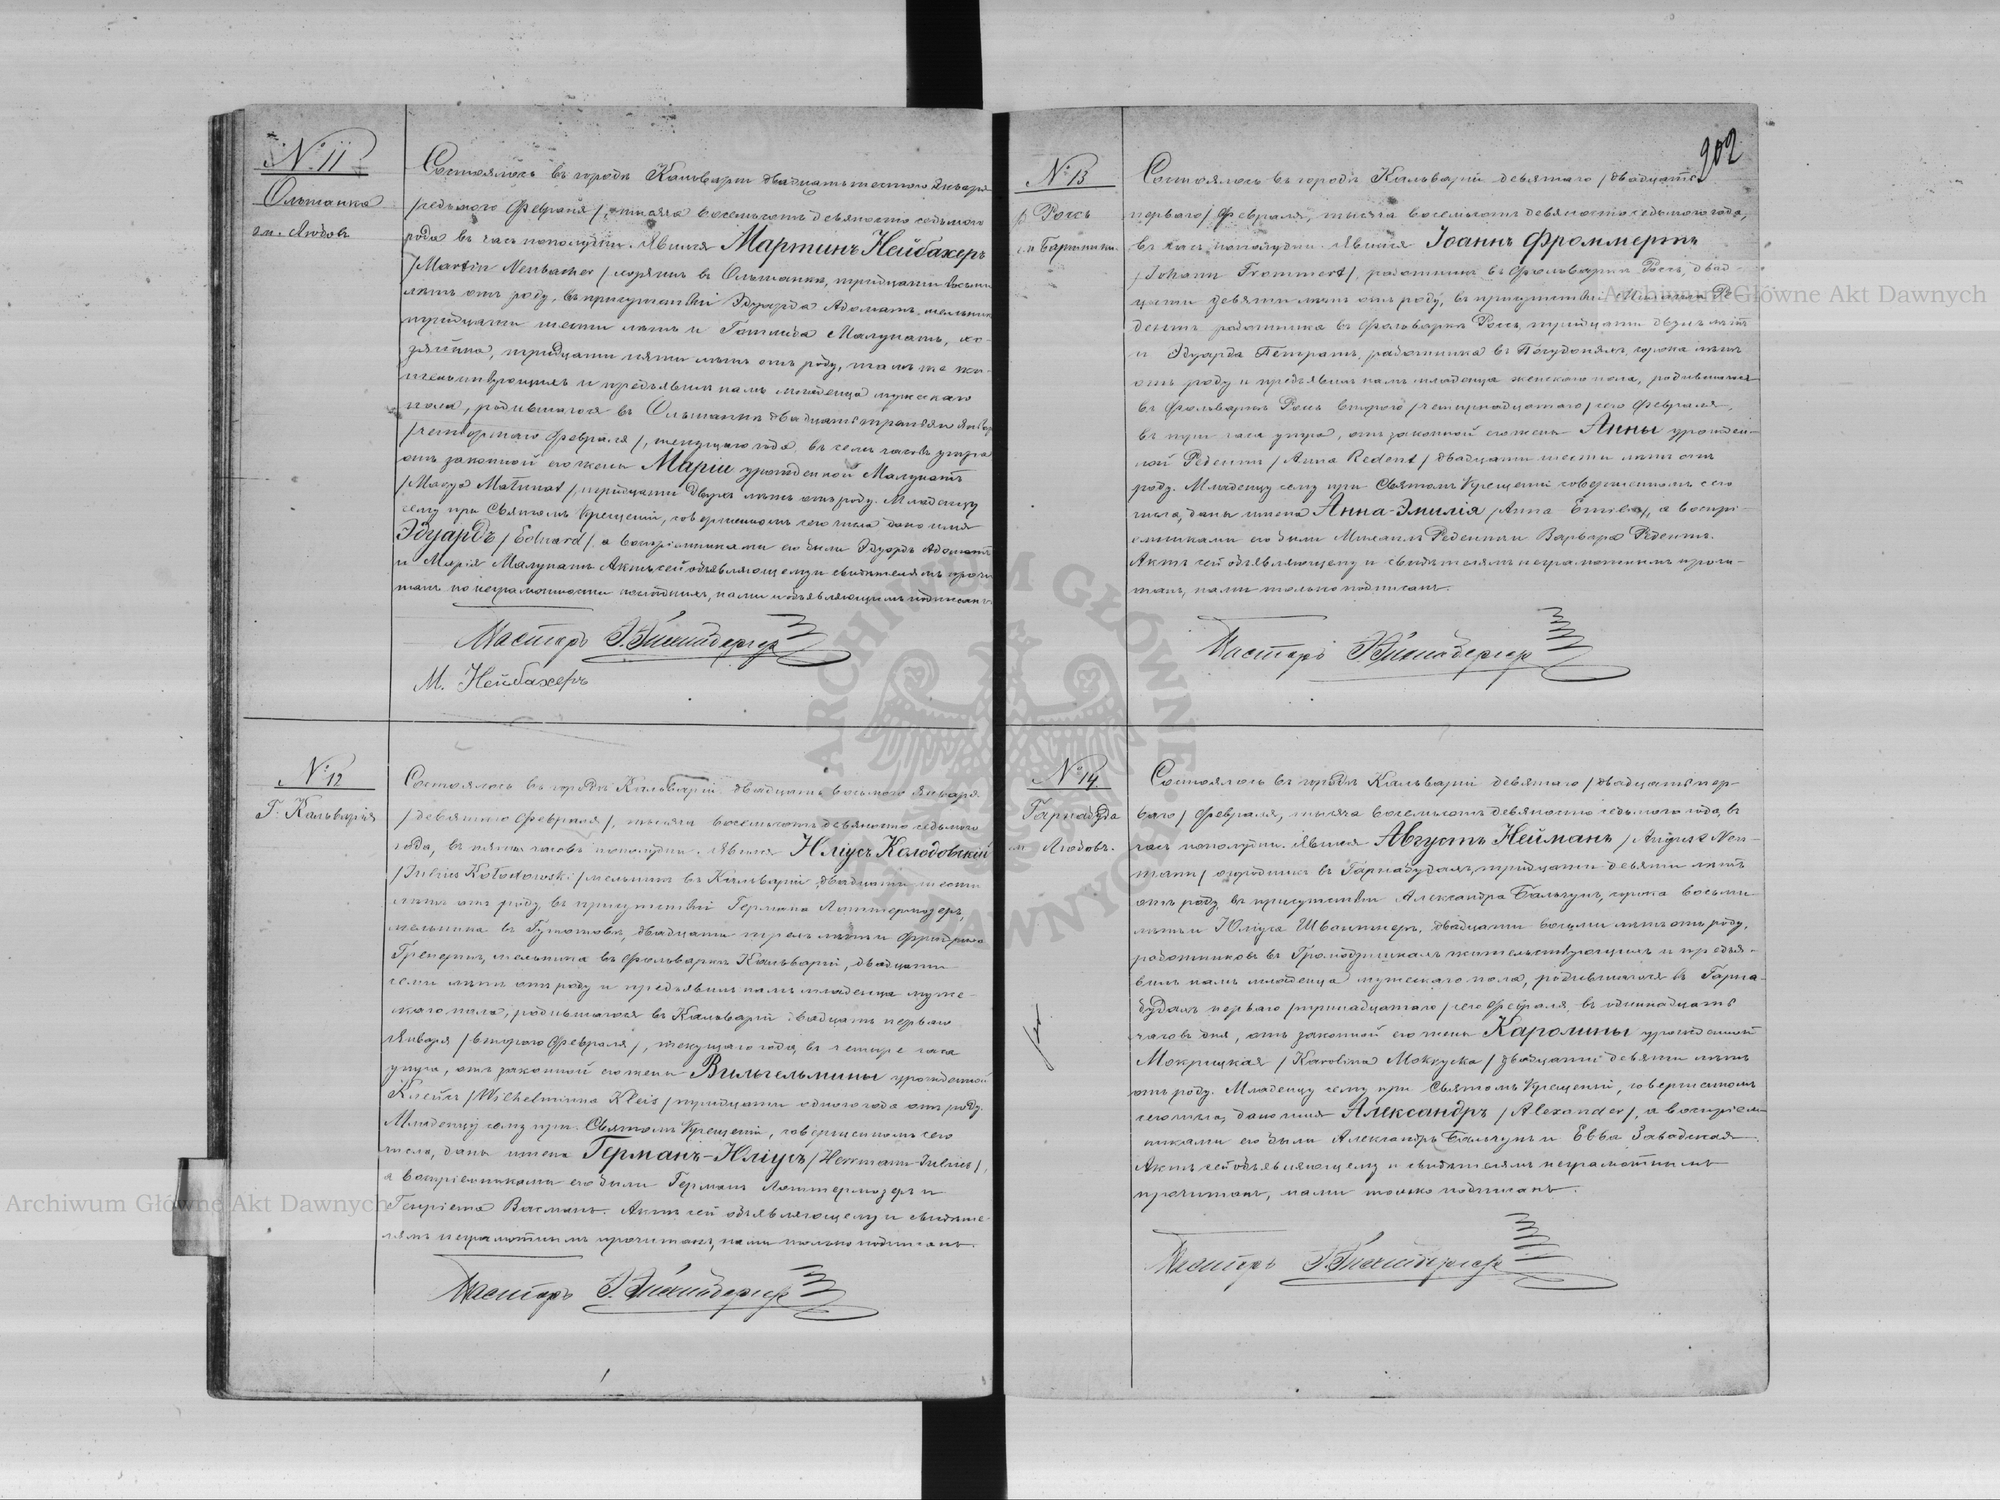 № 11
Ольшанка
гм. Людов.
Состоялось въ городѣ Кальваріи двадцать шестого Января
/седьмого Февраля/, тысяча восемьсотъ девяносто седьмого
года въ часъ пополудни. Явился Мартинъ Нейбахеръ
/Martin Neubacher/ въ Ольшанкѣ, тридцати восьми
лѣтъ отъ роду, въ присутствіи Эдуарда Адоматъ, мельника
тридцати шести лѣтъ и Готлиба Малунатъ, хо-
зяина, тридцати пяти лѣтъ отъ роду, тамъ же жи-
тельствующихъ и предъявилъ намъ младенца мужескаго
пола, родившагося въ Ольшанкѣ двадцать третьяго Января
/четвертаго Февраля/, текущаго года, въ семь часовъ утра
отъ законной его жены Маріи урожденной Малунатъ
/Malunat/, тридцати двухъ лѣтъ отъ роду. Младенцу
сему при Святомъ Крещеніи, совершенномъ сего числа дано имя
Эдуардъ /Eduard/, а воспріемниками его были Эдуардъ Адоматъ
и Марія Малунатъ. Актъ сей объявляющему и свидѣтелямъ прочи-
танъ, по неграмотности послѣднихъ, нами и объявляющимъ подписанъ.
Пасторъ
М. Нейбахеръ
№ 12
Г. Кальварія
Состоялось въ городѣ Кальваріи двадцать восьмого Января
/девятаго Февраля/, тысяча восемьсотъ девяносто седьмого
года, въ пять часовъ пополудни. Явился Юліусъ Колодовскій
/Julius Kołodowski/ мельникъ въ Кальваріи, двадцати шести
лѣтъ отъ роду, въ присутствіи Германа
мельника въ двадцати трехъ лѣтъ и Фридриха
мельника въ фольваркѣ Кальваріи, двадцати
семи лѣтъ отъ роду и предъявилъ намъ младенца муже-
скаго пола, родившагося въ Кальваріи двадцать перваго
Января /второго Февраля/, текущаго года, въ четыре часа
утра, отъ законной его жены Вильгельмины урожденной
Клейсъ /Wilhelmina Kleis/ тридцати одного года отъ роду.
Младенцу сему при Святомъ Крещеніи, совершенномъ сего
числа, даны имена Германъ-Юліусъ /Hermann-Julius/,
а воспріемниками его были Германъ и
Генріета Васманъ. Актъ сей объявляющему и свидѣте-
лямъ неграмотнымъ прочитанъ, нами только подписанъ.
Пасторъ
902
№ 13
ф. Россь
гм. Бартники.
Состоялось въ городѣ Кальваріи девятаго /двадцать
перваго/ Февраля, тысяча восемьсотъ девяносто седьмого года,
въ часъ пополудни. Явился Іоаннъ Фроммертъ
/Johann Frommert/, работникъ въ фольваркѣ Россь, двад-
цати девяти лѣтъ отъ роду, въ присутствіи Михаила Ре-
дентъ работника въ фольваркѣ Россь, тридцати двухъ лѣтъ
и Эдуарда Петратъ, работника въ сорока лѣтъ
отъ роду и предъявилъ намъ младенца женскаго пола, родившагося
въ фольваркѣ Россь второго /четырнадцатаго/ сего Февраля,
въ три часа утра, отъ законной его жены Анны урожден-
ной Редентъ /Anna Redent/ двадцати шести лѣтъ отъ
роду. Младенцу сему при Святомъ Крещеніи совершенномъ сего
числа, даны имена Анна-Эмилія /Anna Emilia/, а воспрі-
емниками его были Михаилъ Редентъ и Варвара Редентъ.
Актъ сей объявляющему и свидѣтелямъ неграмотнымъ прочи-
танъ, нами только подписанъ.
Пасторъ
№ 14.
Гарнабуда
гм. Людовъ.
Состоялось въ городѣ Кальваріи девятаго /двадцать пер-
ваго/ Февраля, тысяча восемьсотъ девяносто седьмого года, въ
часъ пополудни. Явился Августъ Нейманъ /August Neu-
mann/ огородникъ въ Гарнабудахъ, тридцати девяти лѣтъ
отъ роду въ присутствіи Александра Балчунъ, сорока восьми
лѣтъ и Юліуса двадцати восьми лѣтъ отъ роду,
работниковъ въ жительствующихъ и предъя-
вилъ намъ младенца мужескаго пола, родившагося въ Гарна-
будахъ перваго /тринадцатаго/ сего Февраля, въ одиннадцать
часовъ дня, отъ законной его жены Каролины урожденной
Мокрицкая /Karolina двадцати девяти лѣтъ
отъ роду. Младенцу сему при Святомъ Крещеніи, совершенномъ
сего числа, дано имя Александръ /Alexander/, а воспріем-
никами его были Александръ Балчунъ и Евва Завадская.
Актъ сей объявляющему и свидѣтелямъ неграмотнымъ
прочитанъ, нами только подписанъ.
Пасторъ
Archiwum Główne Akt Dawnych
Archiwum Główne Akt Dawnych
ARCHIWUM GŁÓWNE AKT DAWNYCH